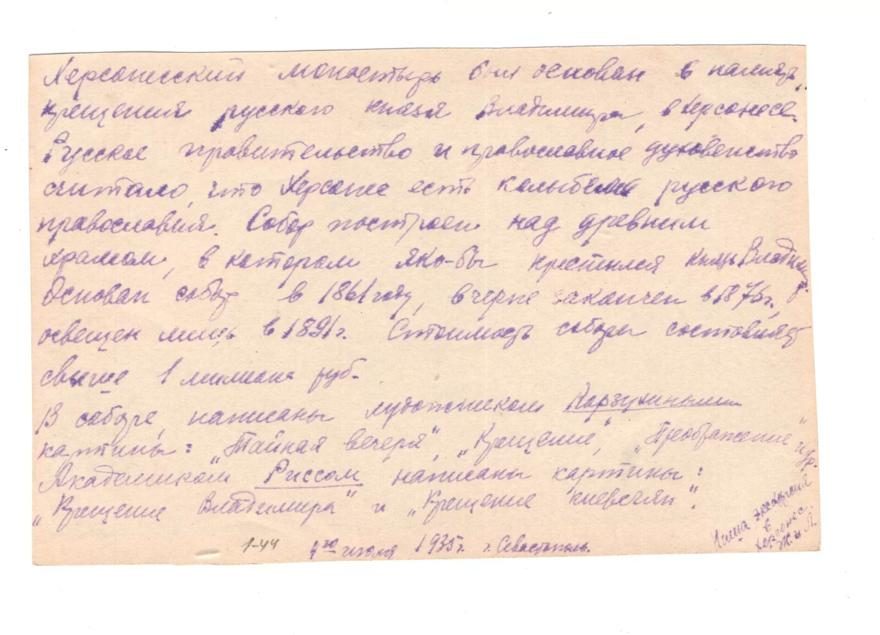 Херсонесский монастырь был основан в память
крещения русского князя Владимира, в Херсонесе.
Русское правительство и православное духовенство
считало, что Херсонес есть колыбель русского
православия. Собор построен над древним
храмом, в котором яко-бы крестился князь Владимир.
Основан собор в 1861 году, вчерне закончен в 1876 г.,
освещен лишь в 1891 г. Стоимость собора составляет
свыше 1 милиона руб.
В соборе, написаны художником Корзухиным
картины: "Тайная вечеря", "Крещение", "Преображение" и др.
Академиком Риссом написаны картины:
"Крещение Владимира" и "Крещение киевлян".
1-44 4го июня 1935 г. г. Севастополь.
Наша экскурсия
в
Херсонес